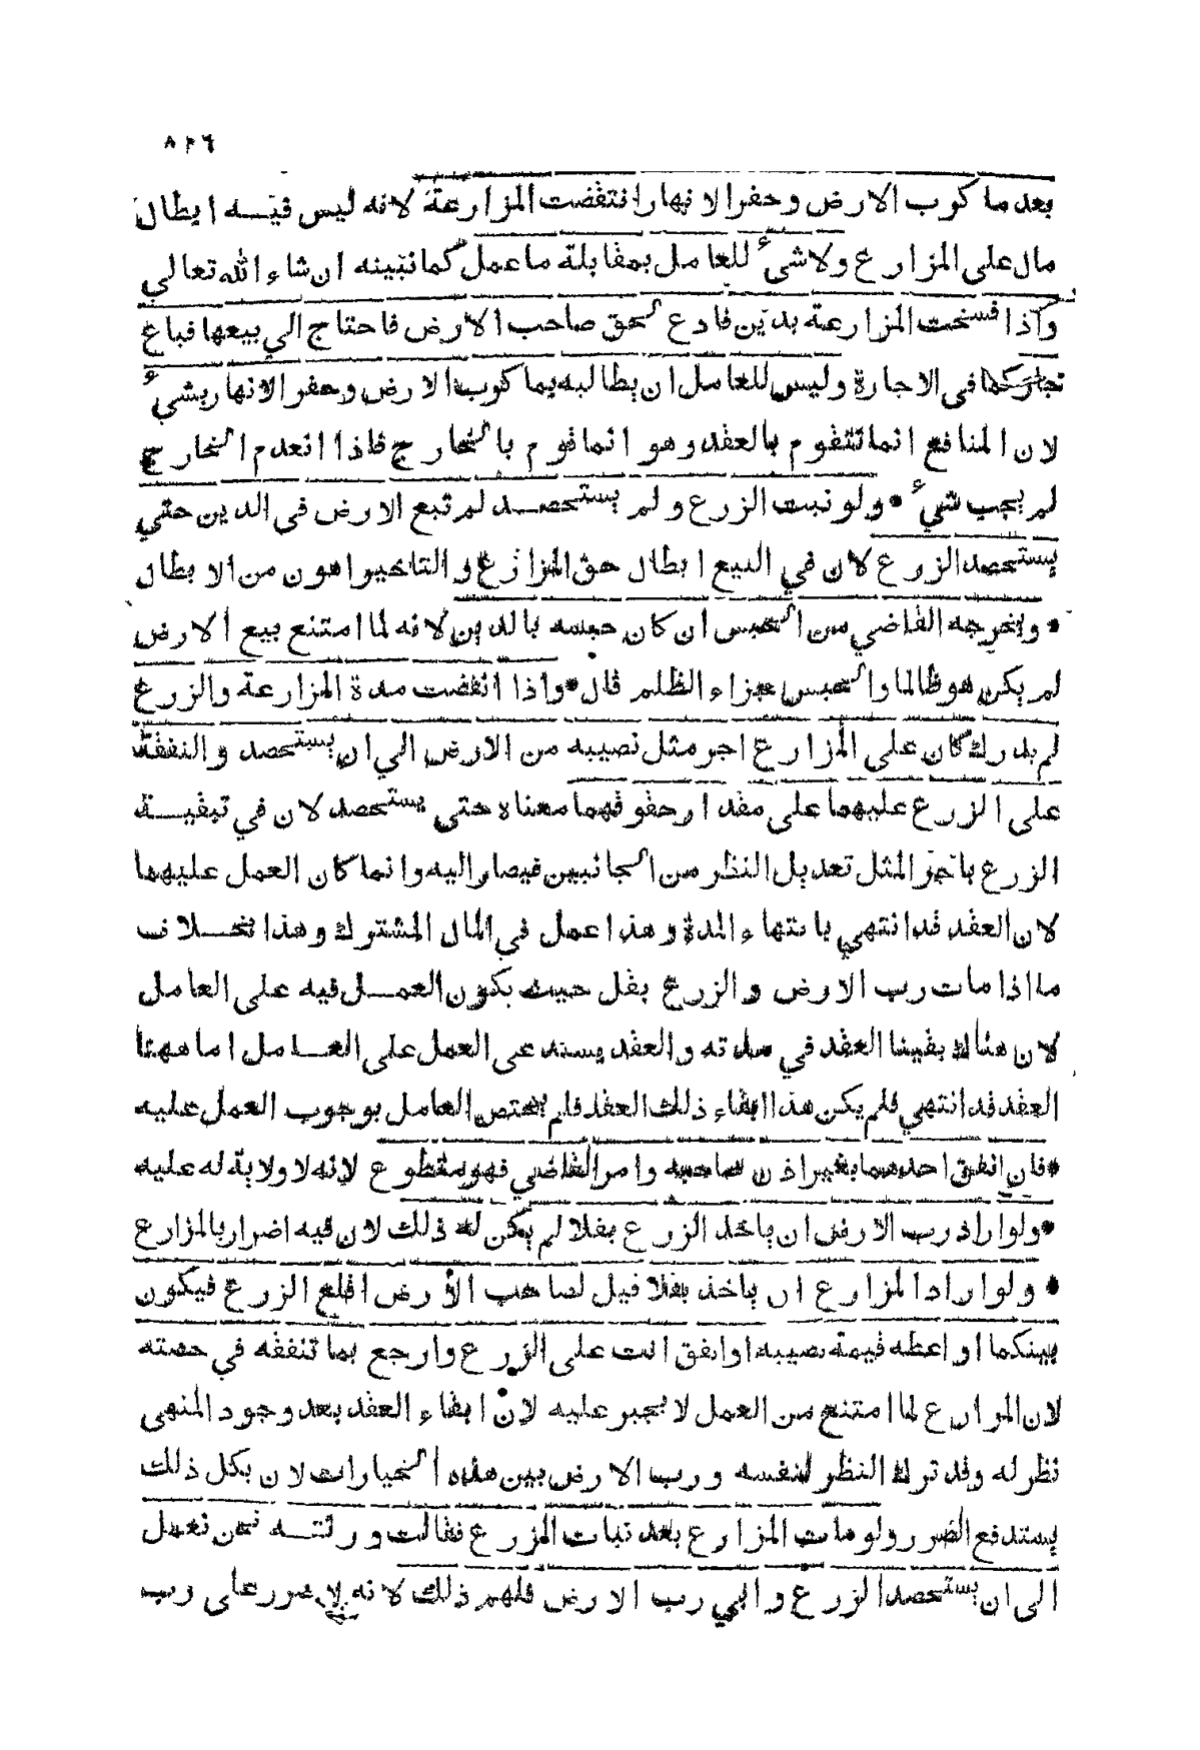 ٨٢٦
بعد ما كرب الارض وحفر الانهار انتقضت المزارعة لانه ليس فيه ابطال
مال على المزارع ولا شيء للعامل بمقابلة ما عمل كما نبينه ان شاء الله تعالى
واذا فسخت المزارعة بدين فادح لحق صاحب الارض فاحتاج الى بيعها فباع
جاز كما في الاجارة وليس للعامل ان يطالبه بما كرب الارض وحفر الانهار بشيء
لان المنافع انما تتقوم بالعقد وهو انما قوم بالخارج فاذا انعدم الخارج
لم يجب شيء • ولو نبت الزرع ولم يستحصد لم تبع الارض في الدين حتى
يستحصد الزرع لان في البيع ابطال حق المزارع والتاخير اهون من الابطال
• ويخرجه القاضي من الحبس ان كان حبسه بالدين لانه لما امتنع بيع الارض
لم يكن هو ظالما والحبس جزاء الظلم قال • واذا انقضت مدة المزارعة والزرع
لم يدرك كان على المزارع اجر مثل نصيبه من الارض الى ان يستحصد والنفقة
على الزرع عليهما على مقدار حقوقهما معناه حتى يستحصد لان في تبقية
الزرع باجر المثل تعديل النظر من الجانبين فيصار اليه وانما كان العمل عليهما
لان العقد قد انتهى بانتهاء المدة وهذا عمل في المال المشترك وهذا بخلاف
ما اذا مات رب الارض والزرع بقل حيث يكون العمل فيه على العامل
لان هناك بقينا العقد في مدته والعقد يستدعى العمل على العامل اما ههنا
العقد قد انتهى فلم يكن هذا ابقاء ذلك العقد فلم يختص العامل بوجوب العمل عليه
• فان انفق احدهما بغير اذن صاحبه وامر القاضي فهو متطوع لانه لا ولاية له عليه
• ولو اراد رب الارض ان ياخذ الزرع بقلا لم يكن له ذلك لان فيه اضرار بالمزارع
• ولو اراد المزارع ان ياخذ بقلا قيل لصاحب الارض اقلع الزرع فيكون
بينكما او اعطه قيمة نصيبه او انفق انت على الزرع وارجع بما تنفقه في حصته
لان المزارع لما امتنع من العمل لا يجبر عليه لان ابقاء العقد بعد وجود المنهى
نظر له وقد ترك النظر لنفسه ورب الارض بين هذه الخيارات لان بكل ذلك
يستدفع الضرر ولو مات المزارع بعد نبات الزرع فقالت ورثته نحن نعمل
الى ان يستحصد الزرع وابى رب الارض فلهم ذلك لانه لا ضرر على رب